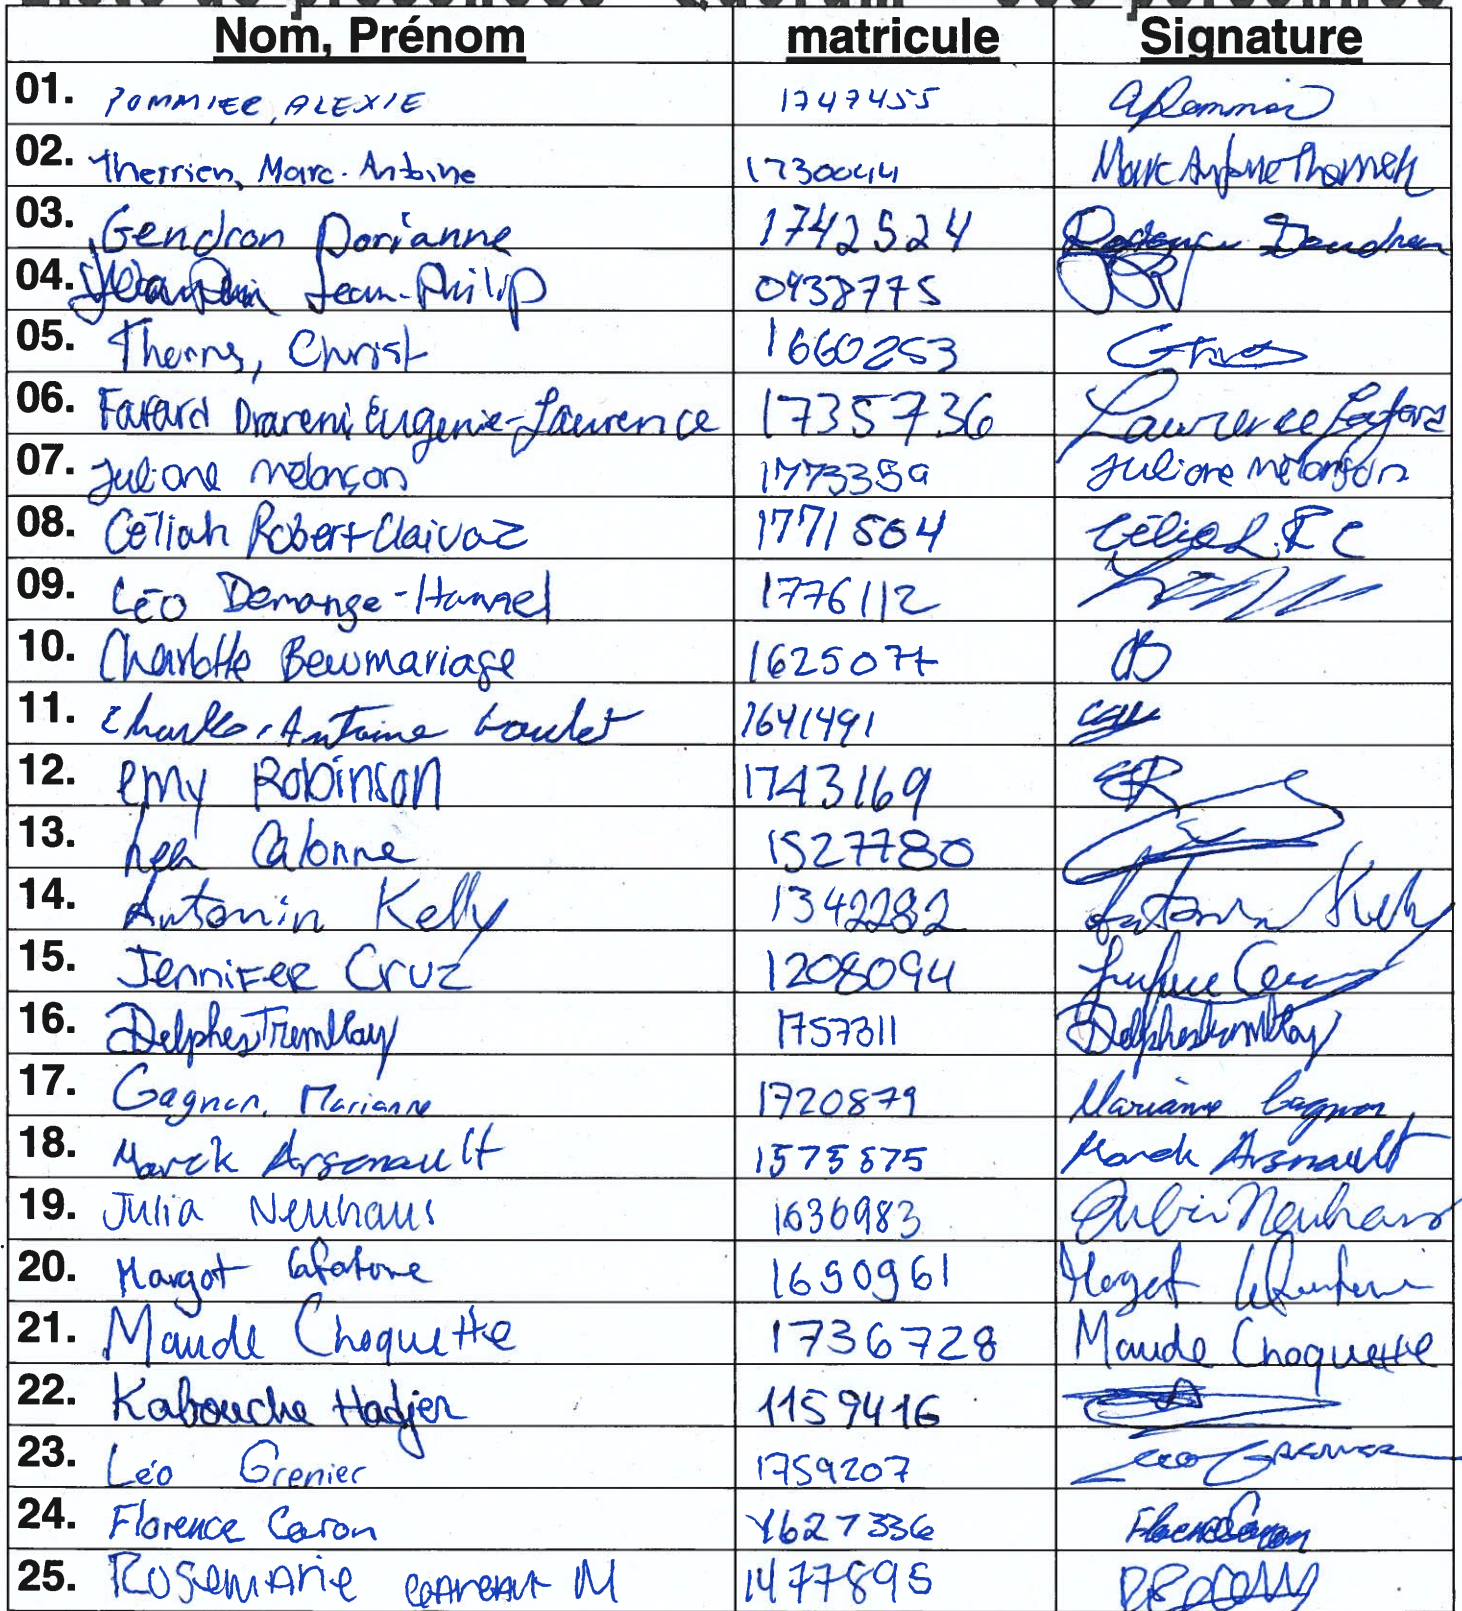 Nom, Prénom matricule Signature
01. POMMIER, ALEXIE 1747455
02. Therrien, Marc-Antoine 1730044
03. Gendron Dorianne 1742524
04. Jean-Philip 0938775
05. Christ 1660253
06. Fafard Drareni Eugenie-Laurence 1735736 Laurence Fafard
07. Juliane Melançon 1773359 Juliane Melançon
08. Céliah Robert-Claivaz 1771564
09. Léo Demange-Hamel 1776112
10. Charlotte Beaumariage 1625077
11. Charles-Antoine Goulet 1641491
12. Emy Robinson 1743169 ER
13. Calonne 1527780
14. Antonin Kelly 1342282 Antonin Kelly
15. JenniFER Cruz 1208094
16. Delphes Tremblay 1757311 Delphes Tremblay
17. Gagnon, Marianne 1720879 Marianne Gagnon
18. Marck Arsenault 1575575 Marck Arsenault
19. Julia Neuhaus 1636983 Julia Neuhaus
20. Margot 1690961 Margot
21. Maude Choquette 1736728 Maude Choquette
22. Kabouche Hadjer 1159416
23. Léo Grenier 1759207 Leo Grenier
24. Florence Caron 1627336 Florence Caron
25. Rosemarie M 1477895